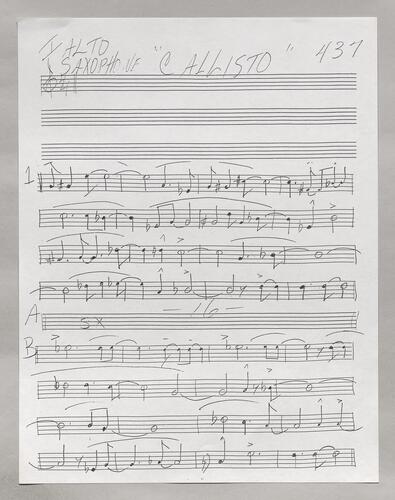 ALTO
SAXOPHONE "CALLISTO" 437
1
A SX -16-
B